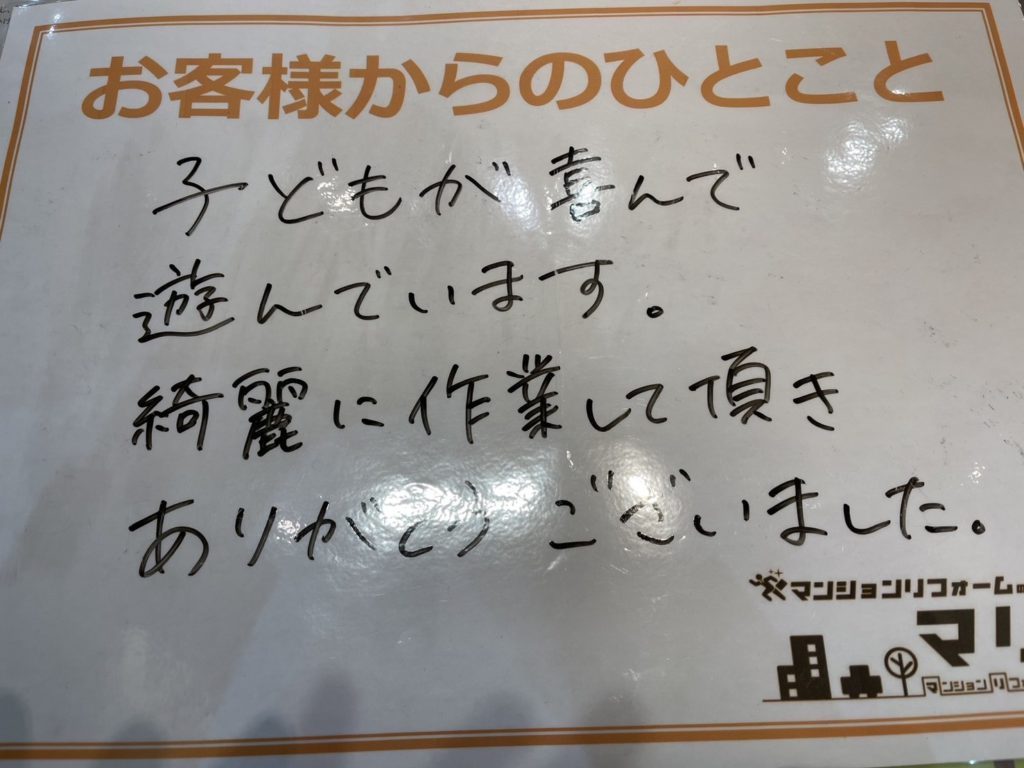 お客様からのひとこと
子どもが喜んで
遊んでいます。
綺麗に作業して頂き
ありがとうございました。
マンションリフォームの
マリ
マンションリフォ